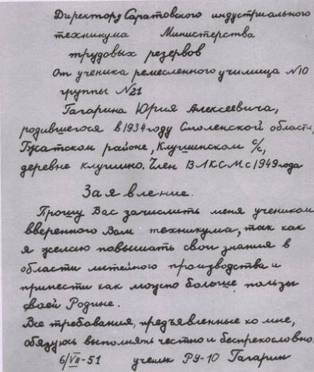 Директору Саратовского индустриального
техникума Министерства
трудовых резервов
От ученика ремесленного училища №10
группы №21
Гагарина Юрия Алексеевича,
родившегося в 1934 году Смоленской области,
Гжатском районе, Клушинском с/с,
деревне клушино. Член ВЛКСМ с 1949 года
Заявление.
Прошу Вас зачислить меня учеником
вверенного Вам техникума, так как
я желаю повышать свои знания в
области литейного производства и
принести как можно больше пользы
своей Родине.
Все требования, предъявленные ко мне,
обязуюсь выполнять честно и беспрекословно.
6/VII-51 ученик РУ-10 Гагарин